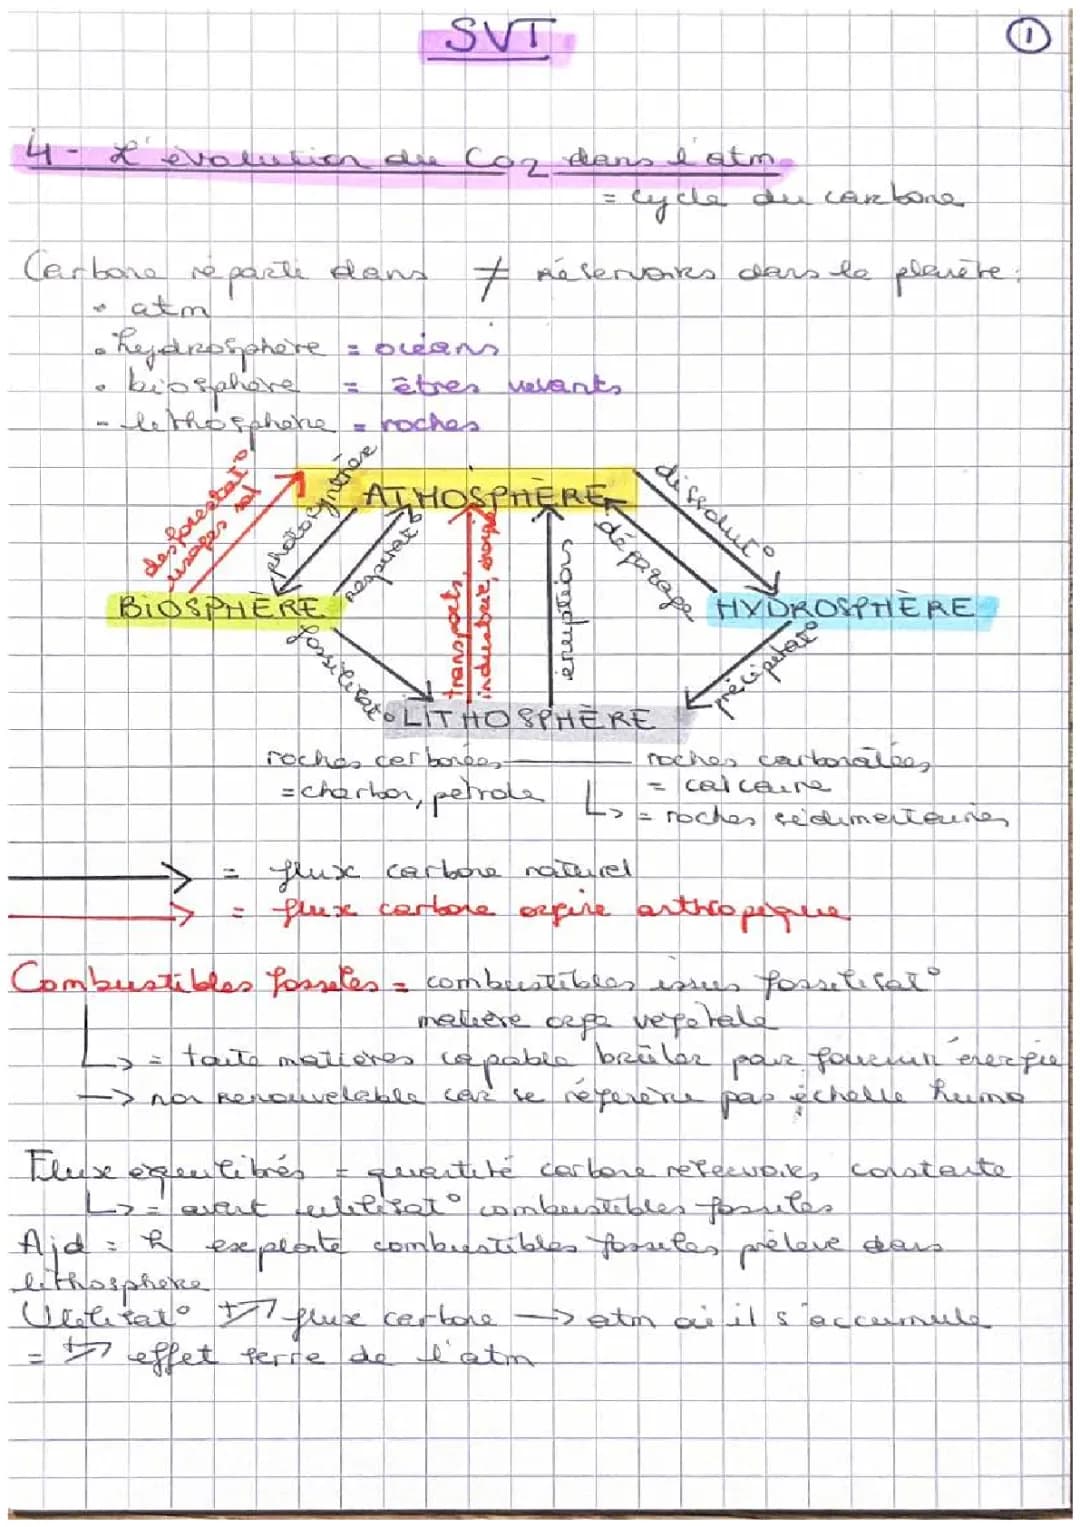 SVT
1
4 - L'évolution du CO2 dans l'atm
= cycle du carbone
Carbone réparti dans ≠ réservoirs dans la planète :
• atm
• hydrosphère = océans
• biosphère = êtres vivants
- lithosphère = roches
desforestat°
usages sol
photosynthèse
respirat°
ATMOSPHÈRE
dissolut°
dégazage
BIOSPHÈRE
HYDROSPHÈRE
fossilisat°
transports,
industrie, énergie
éruptions
précipitat°
LITHOSPHÈRE
roches carbonées
= charbon, pétrole
roches carbonatées
= calcaire
↳ = roches sédimentaires
→ = flux carbone naturel
→ = flux carbone origine anthropique
Combustibles fossiles = combustibles issus fossilisat°
matière orga végétale
↳ = toute matières capable brûler pour fournir énergie
→ non renouvelable car se régénère pas échelle huma
Flux équilibrés = quantité carbone réservoirs constante
↳ = avant utilisat° combustibles fossiles
Ajd = h exploite combustibles fossiles prélevé dans
lithosphère
Utilisat° +↗ flux carbone → atm où il s'accumule
= +↗ effet serre de l'atm